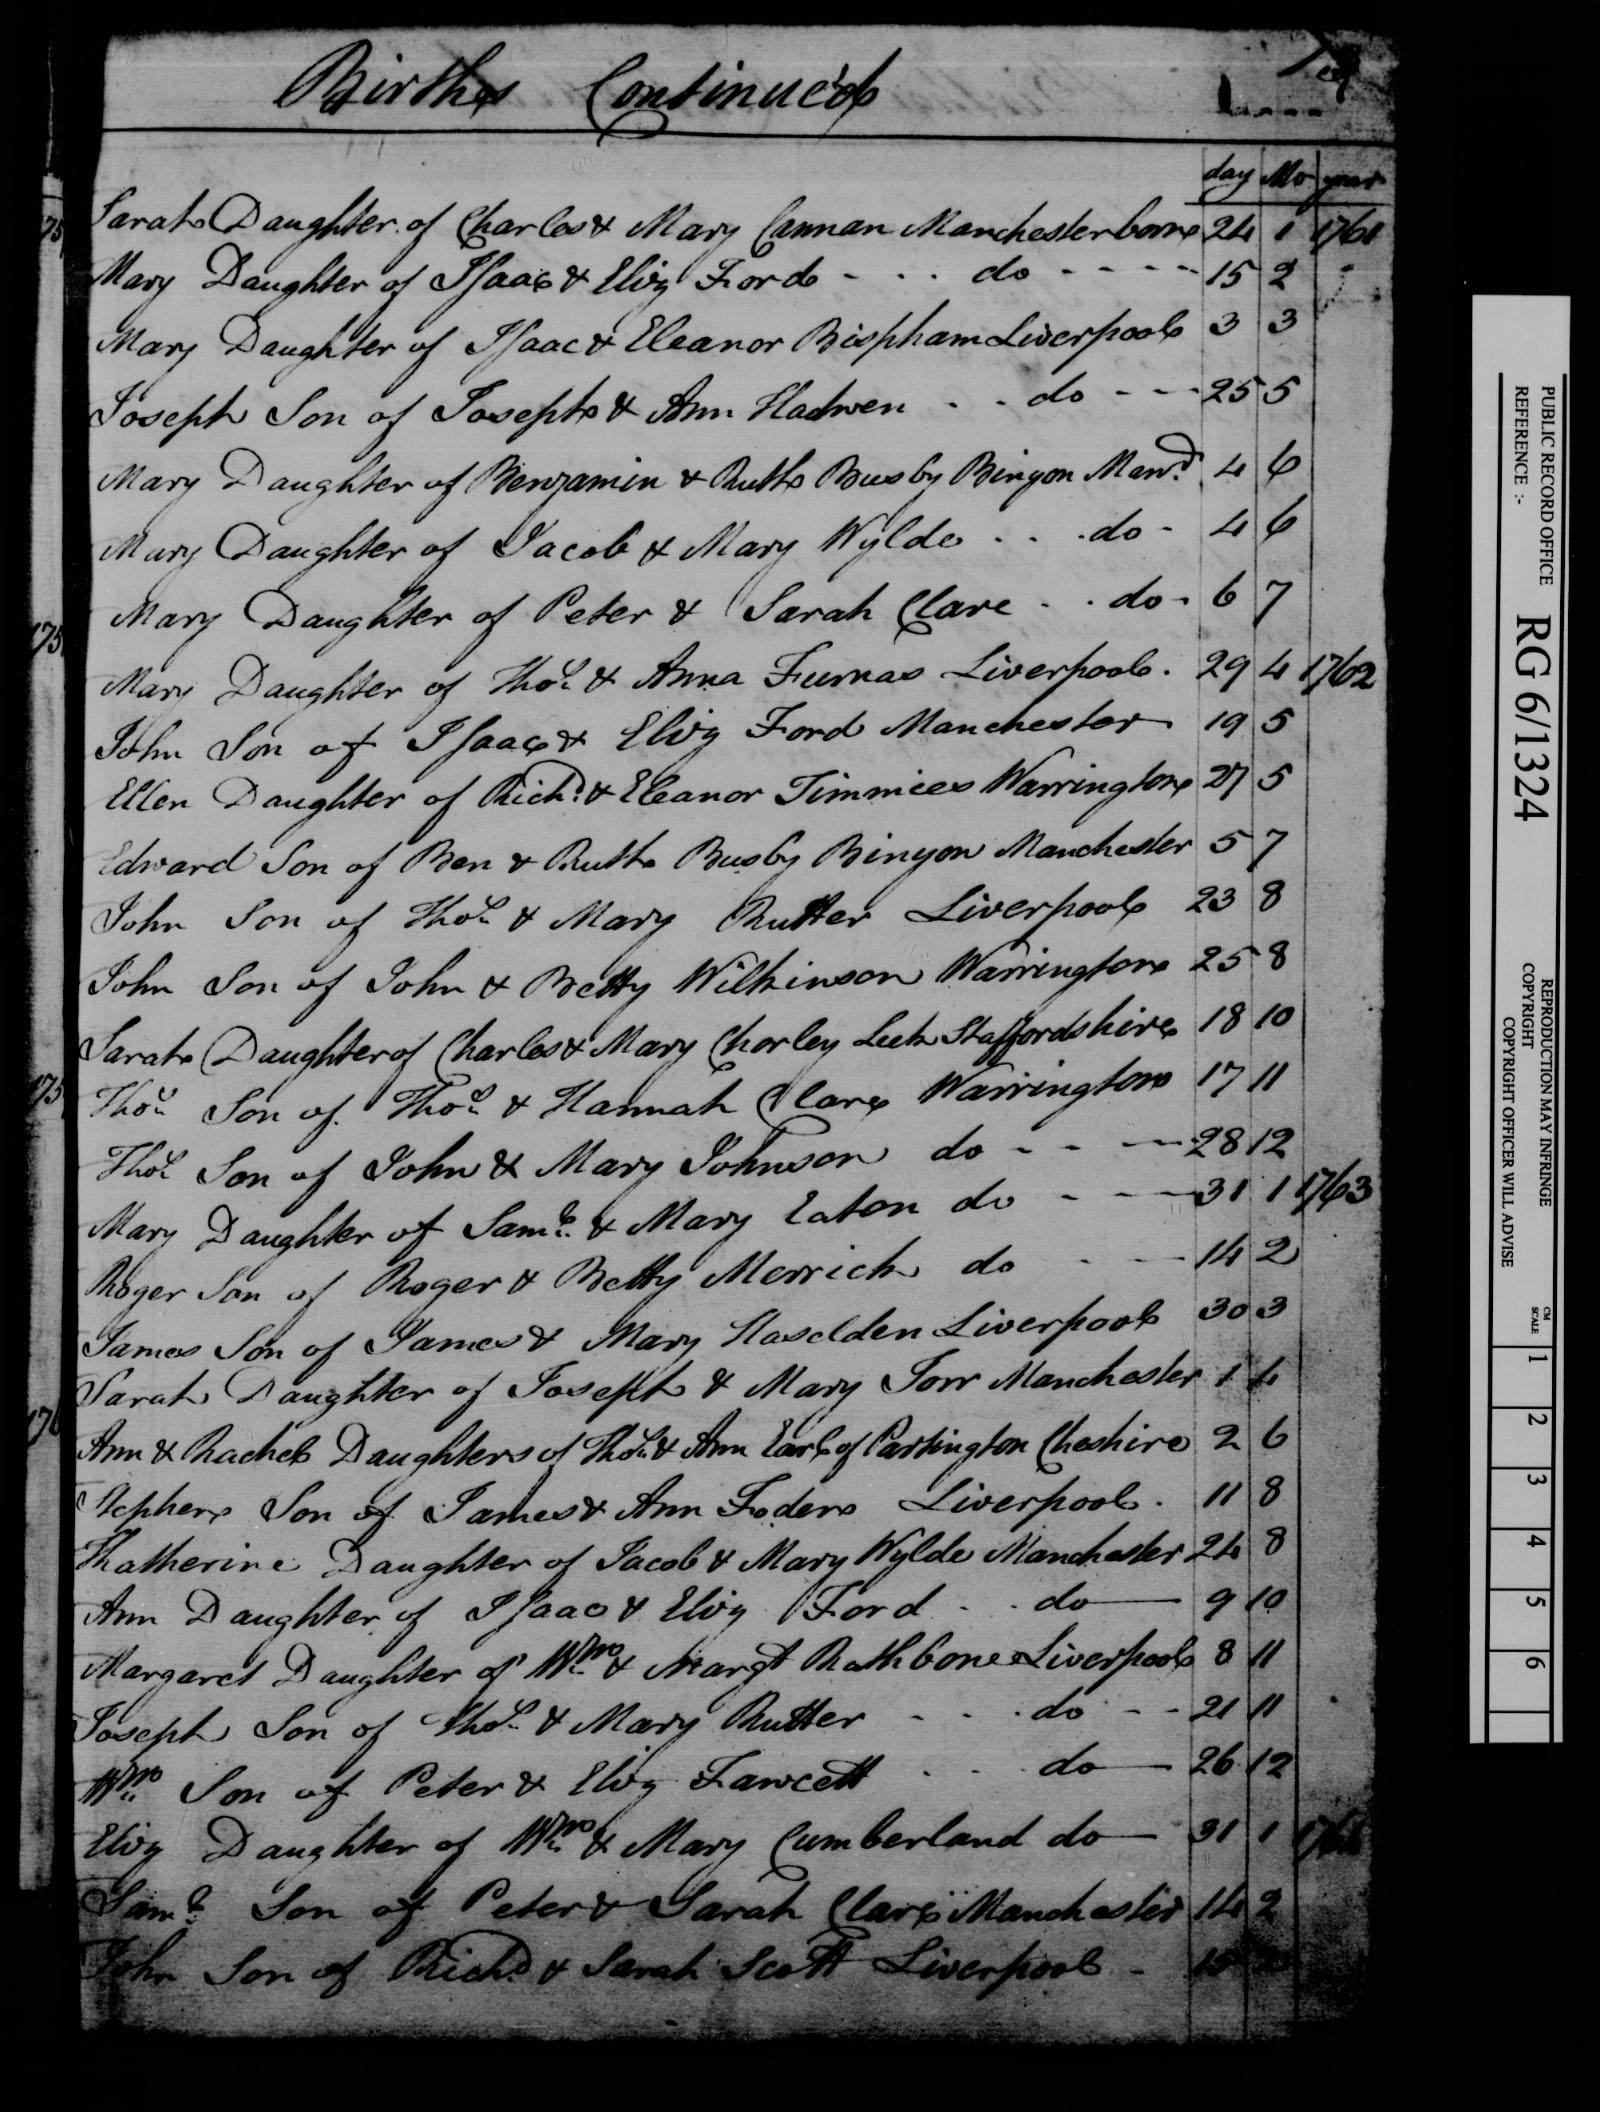 Births Continued
day Mo year
Sarah Daughter of Charles & Mary Cannan Manchester born 24 1 1761
Mary Daughter of Isaac & Eliz Ford - - - do - - - - 15 2
Mary Daughter of Isaac & Eleanor Bispham Liverpool 3 3
Joseph Son of Joseph & Ann Hadwen - - do - - - 25 5
Mary Daughter of Benjamin & Ruth Busby Binyon Man.r 4 6
Mary Daughter of Jacob & Mary Wylde - - - do - 4 6
Mary Daughter of Peter & Sarah Clare - - do - 6 7
Mary Daughter of Thos & Anna Furnas Liverpool. 29 4 1762
John Son of Isaac & Eliz Ford Manchester 19 5
Ellen Daughter of Richd & Eleanor Timmies Warrington 27 5
Edward Son of Ben & Ruth Busby Binyon Manchester 5 7
John Son of Thos & Mary Rutter Liverpool 23 8
John Son of John & Betty Wilkinson Warrington 25 8
Sarah Daughter of Charles & Mary Chorley Leek Staffordshire 18 10
Thos Son of Thos & Hannah Clare Warrington 17 11
Thos Son of John & Mary Johnson do - - - 28 12
Mary Daughter of Saml & Mary Eaton do - - - 31 1 1763
Roger Son of Roger & Betty Merrick do - - 14 2
James Son of James & Mary Haselden Liverpool 30 3
Sarah Daughter of Joseph & Mary Torr Manchester 1 4
Ann & Rachel Daughters of Thos & Ann Earl of Partington Cheshire 2 6
Stephen Son of James & Ann Foden Liverpool. 11 8
Khatherine Daughter of Jacob & Mary Wylde Manchester 24 8
Ann Daughter of Isaac & Eliz Ford - - do — 9 10
Margaret Daughter of Wm & Margt Rathbone Liverpool 8 11
Joseph Son of Thos & Mary Rutter - - - do - - 21 11
Wm Son of Peter & Eliz Fawcett - - do — 26 12
Eliz Daughter of Wm & Mary Cumberland do — 31 1 1764
Saml Son of Peter & Sarah Clare Manchester 14 2
John Son of Richd & Sarah Scott Liverpool - 15
175
175
175
176
PUBLIC RECORD OFFICE
REFERENCE :-
RG 6/1324
REPRODUCTION MAY INFRINGE
COPYRIGHT
COPYRIGHT OFFICER WILL ADVISE
CM
SCALE
1 2 3 4 5 6